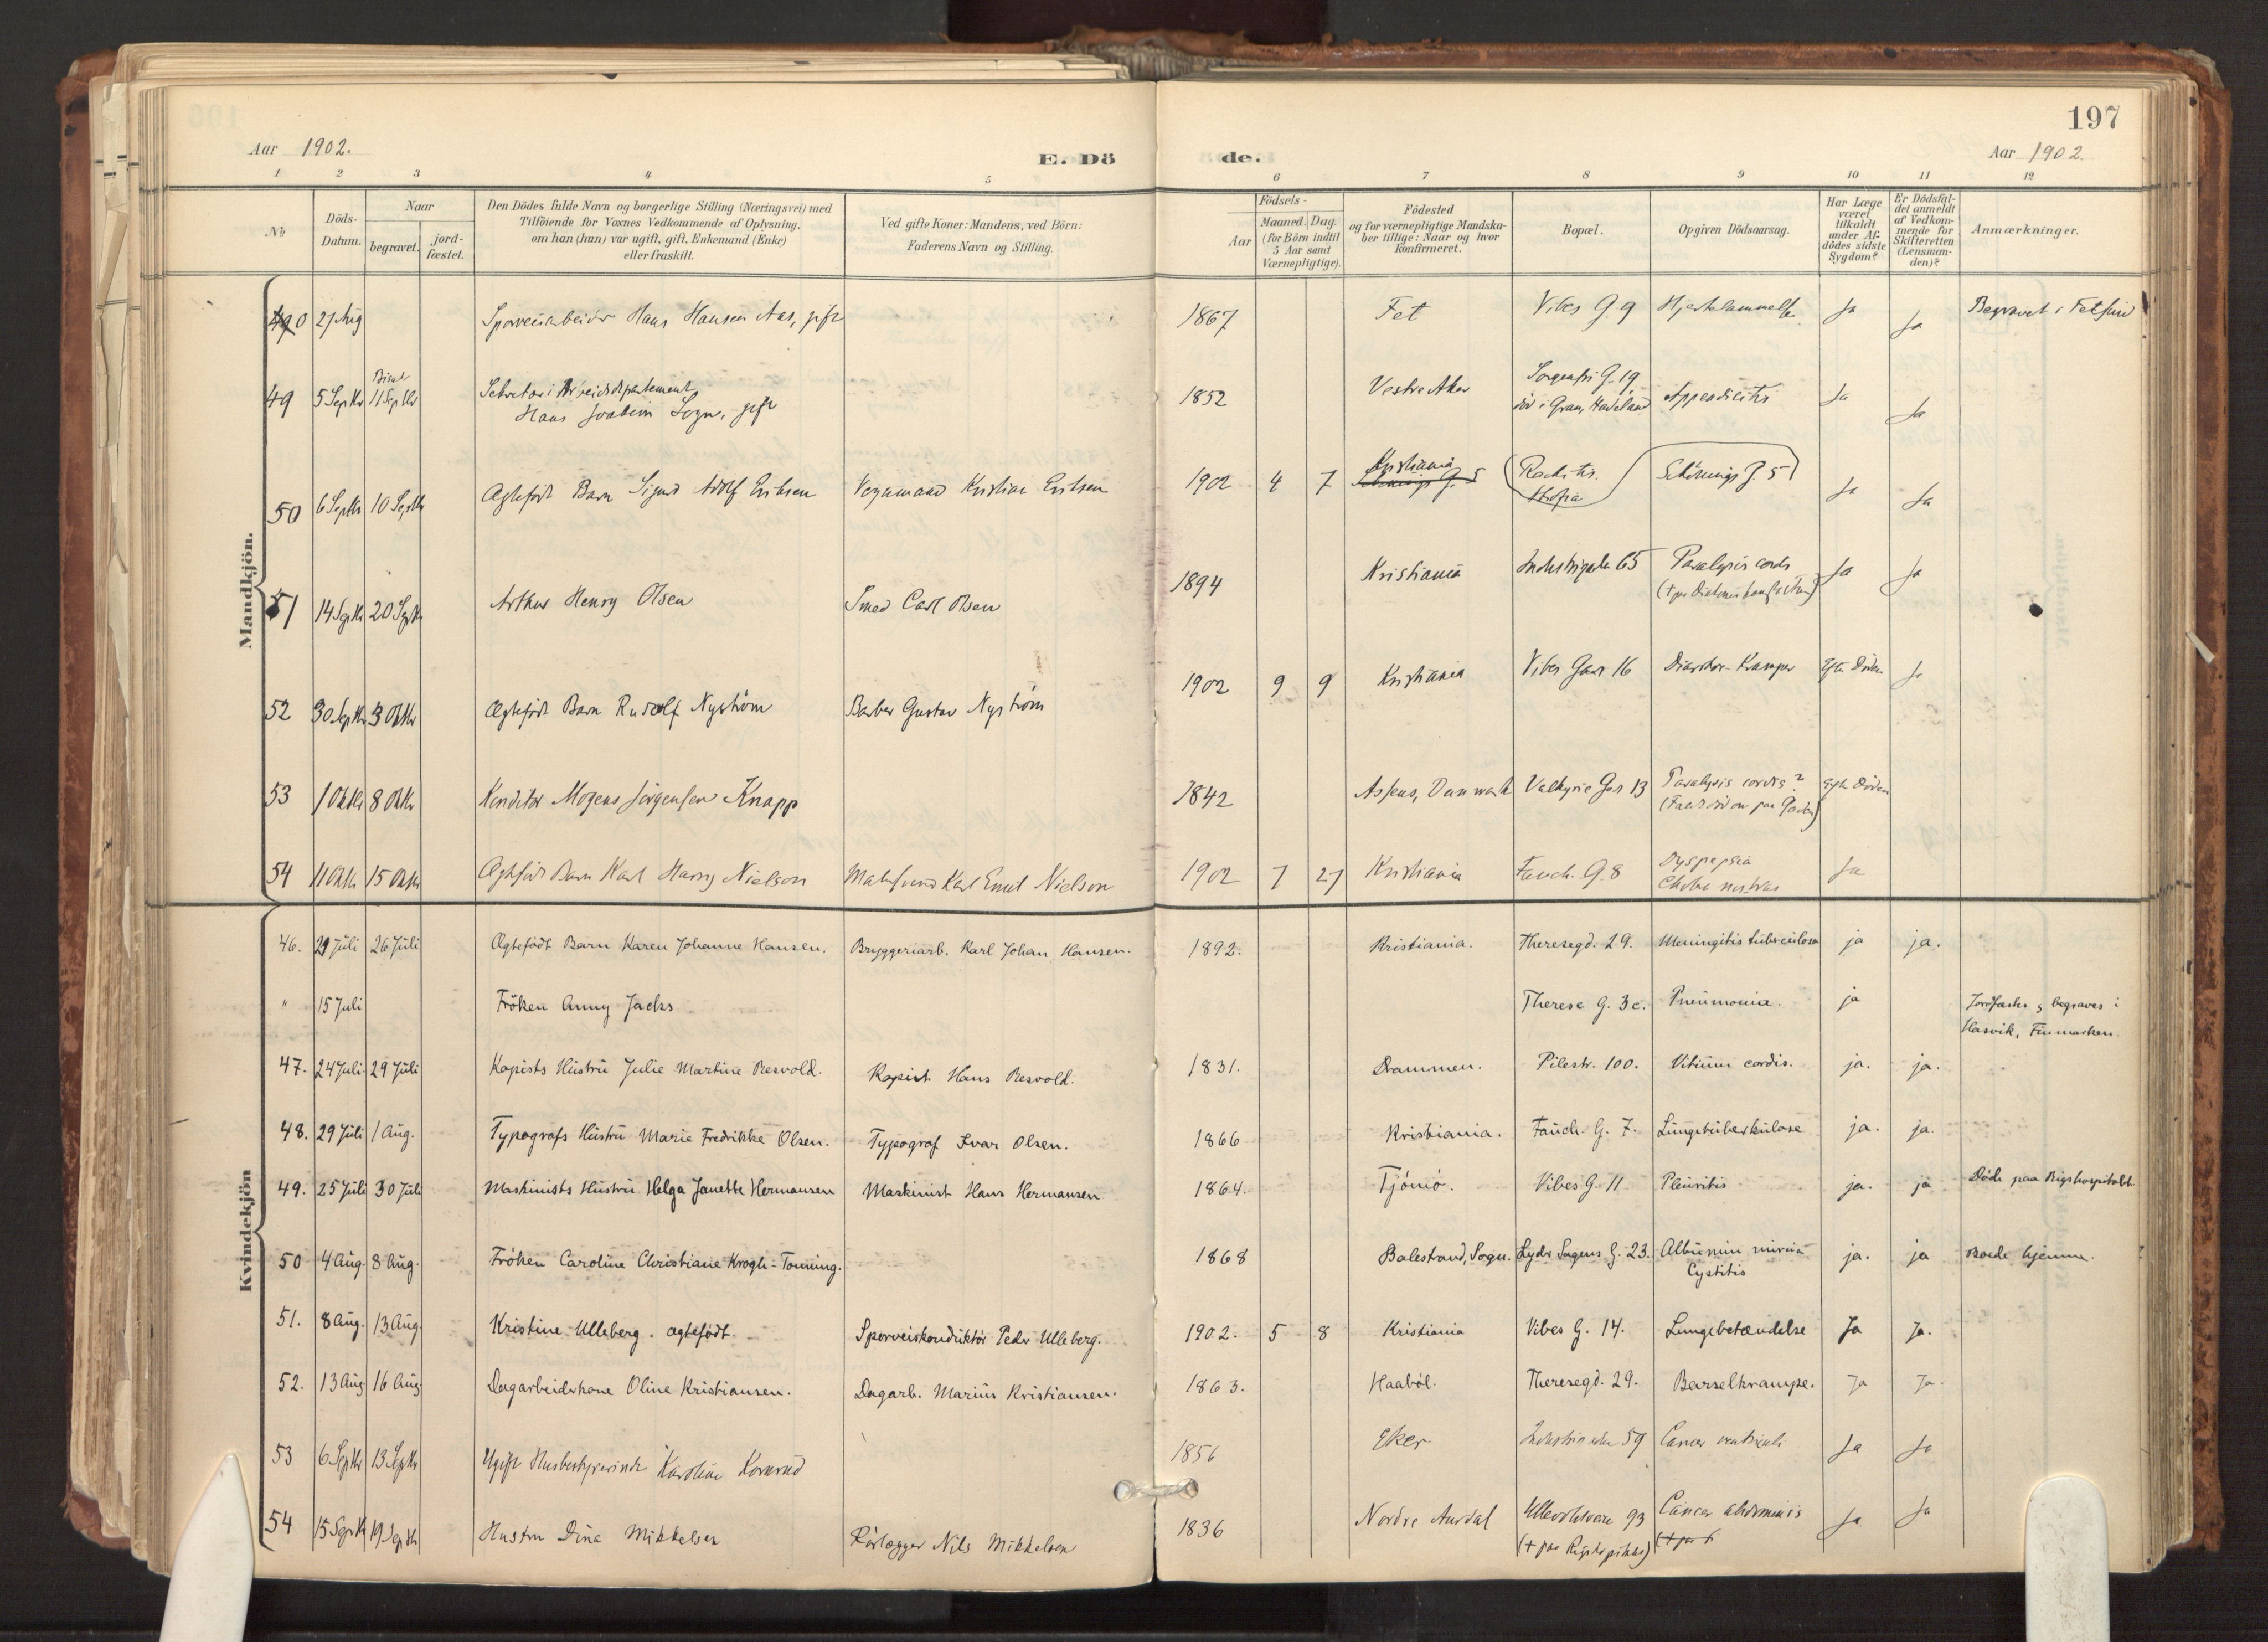 197
Aar 1902.
E. Dö
de.
Aar 1902.
1 2 3 4 5 6 7 8 9 10 11 12
№
Döds-
Datum.
Naar
begravet.
jord-
fæstet.
Den Dödes fulde Navn og borgerlige Stilling (Næringsvei) med
Tilföiende for Voxnes Vedkommende af Oplysning,
om han (hun) var ugift, gift, Enkemand (Enke)
eller fraskilt.
Ved gifte Koner: Mandens, ved Börn:
Faderens Navn og Stilling.
Födsels-
Aar
Maaned. Dag.
(for Börn indtil
5 Aar samt
Værnepligtige).
Födested
og for værnepligtige Mandska-
ber tillige: Naar og hvor
konfirmeret.
Bopæl.
Opgiven Dödsaarsag.
Har Læge
været
tilkaldt
under Af-
dödes sidste
Sygdom?
Er Dödsfal-
det anmeldt
af Vedkom-
mende for
Skifteretten
(Lensman-
den)?
Anmærkninger.
Mandkjön.
0 27 Aug Sporveisarbeider Hans Hansen Aas, gift 1867 Fet Vibes G. 9 Ja Ja Begravet i Fet
49 5 Septbr 11 Septbr Sekretær i Arbeidsdepartement
Hans Joakim Sogn, gift 1852 Vestre Aker Sorgenfri G. 19
död i Gran, Hadeland Appendicitis Ja Ja
50 6 Septbr 10 Septbr Ægtefödt Barn Sigurd Adolf Eriksen Vognmand Kristian Eriksen 1902 4 7 Kristiania Schönings G. 5 Ja Ja
51 14 Septbr 20 Septbr Arthur Henry Olsen Smed Carl Olsen 1894 Kristiania Industrigaden 65 Paralysis cordis Ja Ja
52 30 Septbr 3 Oktbr Ægtefödt Barn Rudolf Nyström Barber Gustav Nyström 1902 9 9 Kristiania Vibes Gade 16 Diarrhoe - Kramper efter Döden Ja
53 1 Oktbr 8 Oktbr Konditor Mogens Jörgensen Knapp 1842 Assens, Danmark Valkyrie Gd 13 Paralysis cordis?
(Faldt död om paa Gaden) efter Döden
54 11 Oktbr 15 Oktbr Ægtefödt Barn Karl Harry Nielson Malersvend Karl Emil Nielson 1902 7 27 Kristiania Fauch. G. 8 Dyspepsia
Cholera nostras Ja
Kvindekjön
46. 21 Juli 26 Juli Ægtefödt Barn Karen Johanne Hansen. Bryggeriarb. Karl Johan Hansen. 1892. Kristiania. Theresegd. 29. Meningitis tuberculosa ja ja.
" 15 Juli Fröken Anny Jacks Therese G. 3c. Pneumonia. ja Jordfæstes & begraves i
Hasvik, Finmarken.
47. 24 Juli 29 Juli Kopists Hustru Julie Martine Resvold. Kopist Hans Resvold. 1831. Drammen. Pilestr. 100. Vitium cordis. ja. ja.
48. 29 Juli 1 Aug. Typografs Hustru Marie Fredrikke Olsen. Typograf Ivar Olsen. 1866 Kristiania. Fauch. G. 7. Lungetuberkulose ja. ja.
49. 25 Juli 30 Juli Maskinists Hustru Helga Janette Hermansen Maskinist Hans Hermansen 1864. Tjömö. Vibes G. 11 Pleuritis ja. ja Döde paa Rigshospitalet
50 4 Aug. 8 Aug. Fröken Caroline Christiane Krogh-Tonning. 1868 Balestrand, Sogn. Lyder Sagens G. 23. Albuminuria
Cystitis ja. ja Boede hjemme.
51. 8 Aug. 13 Aug. Kristine Ulleberg. ægtefödt. Sporveiskonduktör Peder Ulleberg. 1902. 5 8 Kristiania Vibes G. 14. Lungebetændelse Ja Ja.
52. 13 Aug 16 Aug. Dagarbeiderkone Oline Kristiansen. Dagarb. Marius Kristiansen. 1863. Haaböl. Theresegd. 29. Barselkrampe. Ja Ja.
53 6 Septbr 13 Septbr Ugift Husbestyrerinde Karoline Kornrud 1856 Eker Industrigaden 59 Cancer ventriculi Ja Ja
54 15 Septbr 19 Septbr Hustru Dina Mikkelsen Rörlægger Nils Mikkelsen 1836 Nordre Aurdal Ullevoldsveien 93
(+ paa Rigshospitalet) Cancer abdominis
(+ paa Ja Ja